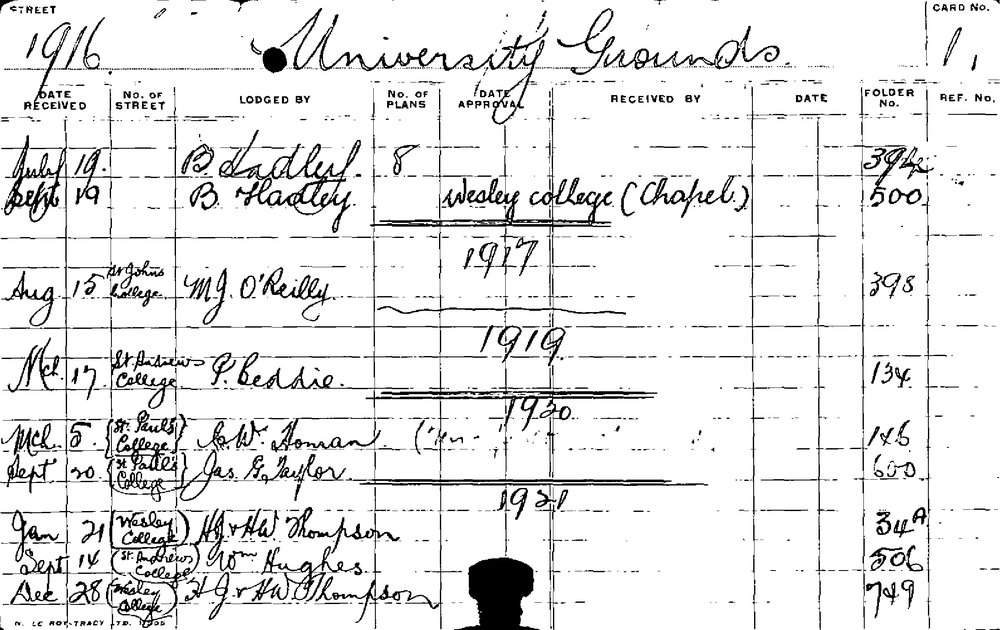 STREET CARD No.
1916. University Grounds. 1,
DATE RECEIVED No. OF STREET LODGED BY No. OF PLANS DATE APPROVAL RECEIVED BY DATE FOLDER No. REF. No.
July 19. B. Hadley. 8
Sept 19 B. Hadley. Wesley college (Chapel.) 500
1917
Aug 15 St Johns College M.J. O'Reilly. 398
1919.
Mch. 17 St. Andrews College P. Beddie. 134
1920
Mch. 5. (St. Paul's College) Homan 146
Sept 20 (St Paul's College) Jas. G. Taylor 600
1921
Jan 21 (Wesley College) H.J. & H.W. Thompson 34A
Sept 14 (St. Andrews College) Wm Hughes. 506
Dec 28 (Wesley College) H J & H W Thompson 749